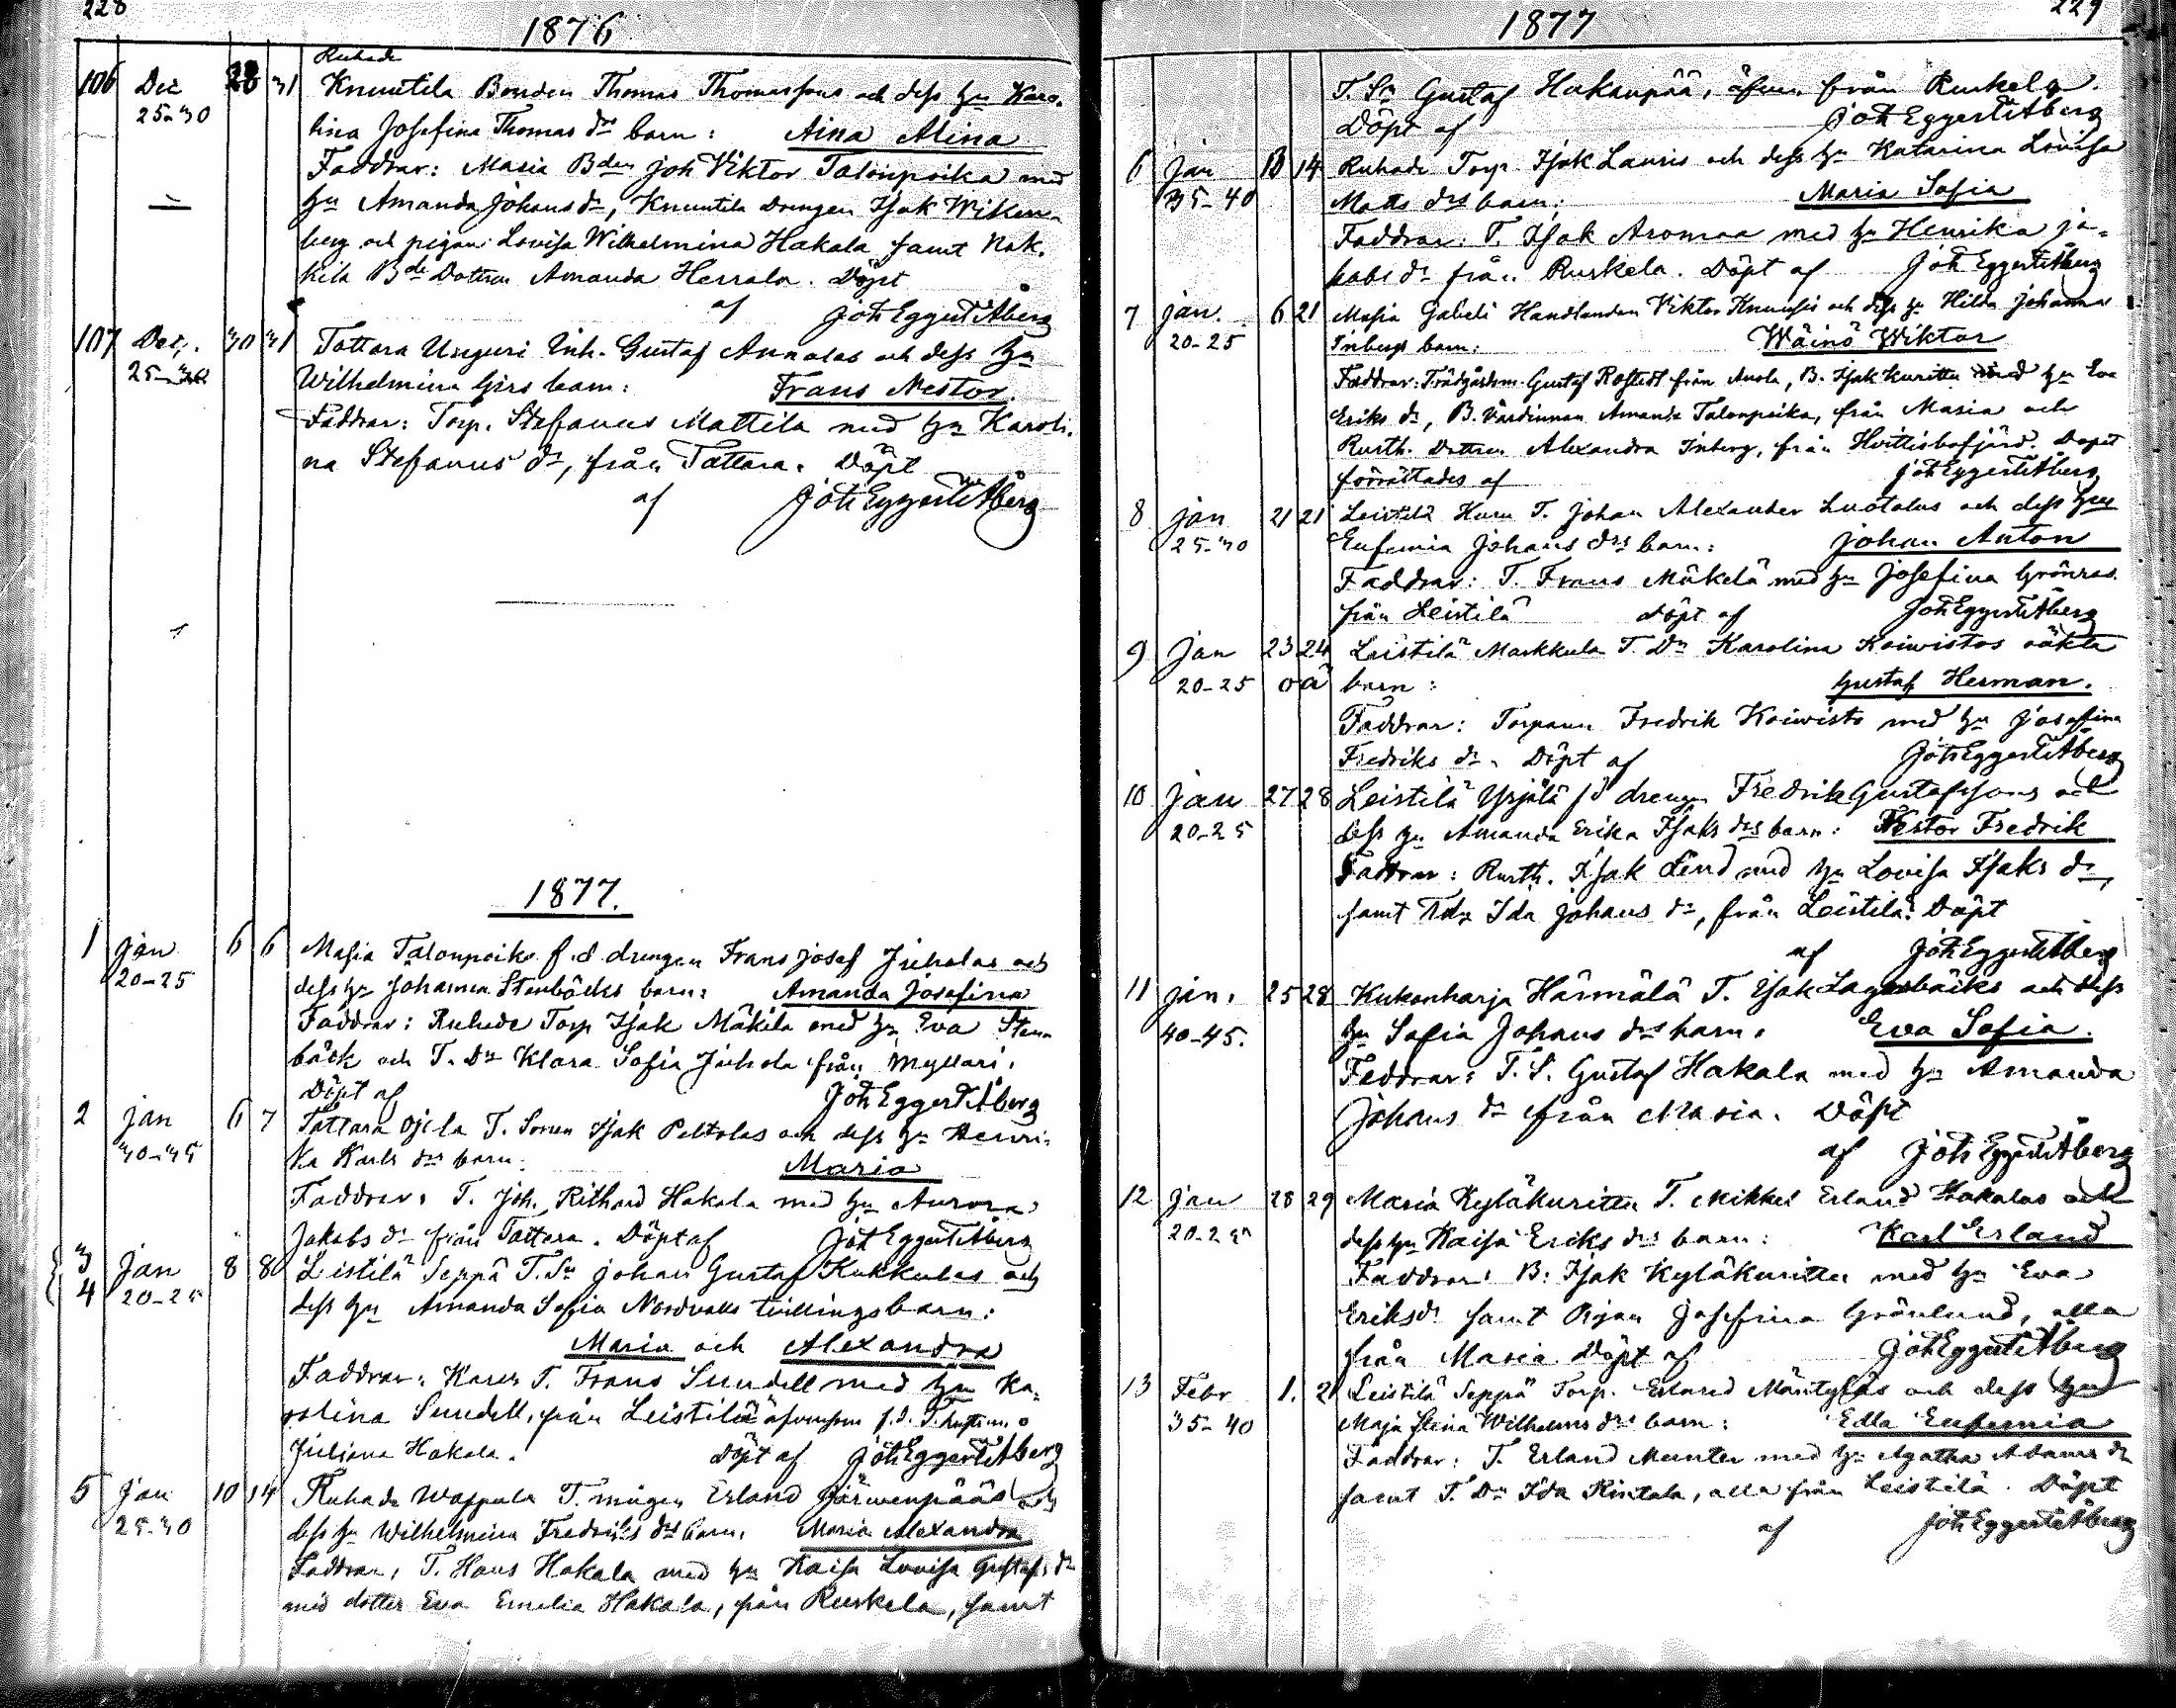 228
1876
Ruhade
106 Dec 28 31 Knuutila Bonden Thomas Thomassons och dess hu Karo-
25-30 lina Josefina Thomas drs barn: Aina Alina
Faddrar: Masia Bden Joh Viktor Talonpoika med
hu Amanda Johans dr, Knuutila Drengen Isak Wiken-
berg och pigan Lovisa Wilhelmina Hakala samt Nak-
kila Bde Dottren Amanda Herrala. Döpt
af Joh Eggert Åberg
107 Dec. 30 31 Tattara Unguri Inh. Gustaf Annalas och dess hu
25- Wilhelmina Girs barn: Frans Nestor.
Faddrar: Torp. Stefanus Mattila med hu Karoli-
na Stefanus dr, från Tattara. Döpt
af Joh Eggert Åberg
1877.
1 Jan 6 6 Masia Talonpoika f.d drengen Frans Josef Juholas och
20-25 dess hu Johanna Stenbäcks barn: Amanda Josefina
Faddrar: Ruhade Torp Isak Mäkilä med hu Eva Sten-
bäck och T. Dr Klara Sofia Juhola från Myllari.
Döpt af Joh Eggert Åberg
2 Jan 6 7 Tattara Ojela T. Sonen Isak Peltolas och dess hu Henri-
30-35 ka Karls drs barn: Maria
Faddrar: T. Joh. Rithard Hakala med hu Aurora
Jakobs dr från Tattara. Döpt af Joh Eggert Åberg
3 Jan 8 8 Leistilä Seppä T. Sn Johan Gustaf Kukkulas och
4 20-25 dess hu Amanda Sofia Nordvalls tvillingsbarn:
Maria och Alexandra
Faddrar: Karen T. Frans Sundell med hu Ka-
rolina Sundell, från Leistilä äfvensom f.d. T.
Juliana Hakala. Döpt af Joh Eggert Åberg
5 Jan 10 14 Ruhade Wappula T. mågen Erland Järwenpääs och
25-30 dess hu Wilhelmina Fredriks drs barn: Maria Alexandra
Faddrar: T. Hans Hakala med hu Kaisa Lovisa Gustafs dr
med dotter Eva Emelia Hakala, från Ruskela, samt
229
1877
T. Sn Gustaf Hakanpää, äfven från Ruskela.
Döpt af Joh Eggert Åberg
6 Jan 13 14 Ruhade Torp Isak Lauris och dess hu Katarina Lovisa
35-40 Matts drs barn: Maria Sofia
Faddrar: T. Isak Aromaa med hu Henrika Ja-
kobs dr från Ruskela. Döpt af Joh Eggert Åberg
7 Jan. 6 21 Masia Gabeli Handlanden Viktor Knuuses och dess hu Hilda Johanna
20-25 Inbergs barn: Wäinö Wiktor
Faddrar: Trädgårdsm. Gustaf Rostedt från Anola, B. Isak Kurittu med hu Eva
Eriks dr, B. Värdinnan Amanda Talonpoika, från Masia och
Rusth. Dottren Alexandra Inberg, från Hvittisbofjärd. Dopet
förrättades af Joh Eggert Åberg
8 Jan 21 21 Leistilä Huru T. Johan Alexander Luotolas och dess hu
25-30 Eufemia Johans drs barn: Johan Anton
Faddrar: T. Frans Mäkelä med hu Josefina Grönroos
från Leistilä Döpt af Joh Eggert Åberg
9 Jan 23 24 Leistilä Markkula T. Dn Karolina Koiwistos oäkta
20-25 oä barn: Gustaf Herman.
Faddrar: Torparen Fredrik Koiwisto med hu Josefina
Fredriks dr. Döpt af Joh Eggert Åberg
10 Jan 27 28 Leistilä Yrjälä fd drengen Fredrik Gustafssons och
20-25 dess hu Amanda Erika Isaks drs barn: Nestor Fredrik
Faddrar: Rusth. Isak Lend med hu Lovisa Isaks dr,
samt Td Ida Johans dr, från Leistilä. Döpt
af Joh Eggert Åberg
11 Jan. 25 28 Kukonharja Härmälä T. Isak Lagerbäcks och dess
40-45. hu Sofia Johans drs barn: Eva Sofia.
Faddrar: T. S. Gustaf Hakala med hu Amanda
Johans dr från Masia. Döpt
af Joh Eggert Åberg
12 Jan 28 29 Masia Kyläkurittu T. Mikkel Erland Hakalas och
20-25 dess hu Kaisa Eriks drs barn: Karl Erland
Faddrar: B: Isak Kyläkurittu med hu Eva
Eriksdr samt Pigan Josefina Grönlund, alla
från Masia. Döpt af Joh Eggert Åberg
13 Febr 1. 2 Leistilä Seppä Torp. Erland Mäntyläs och dess hu
35-40 Maja Stina Wilhelms drs barn: Edla Eufemia
Faddrar: T. Erland Munter med hu Agatha Adams dr
samt T. Dn Ida Rintala, alla från Leistilä. Döpt
af Joh Eggert Åberg